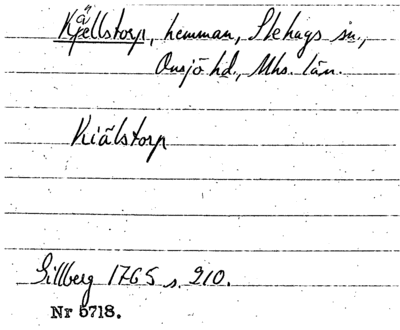 Kjellstorp, hemman, Stehags sn.,
Onsjö hd., Mhs. län.
Kiälstorp
Gillberg 1765 s. 210.
Nr 5718.